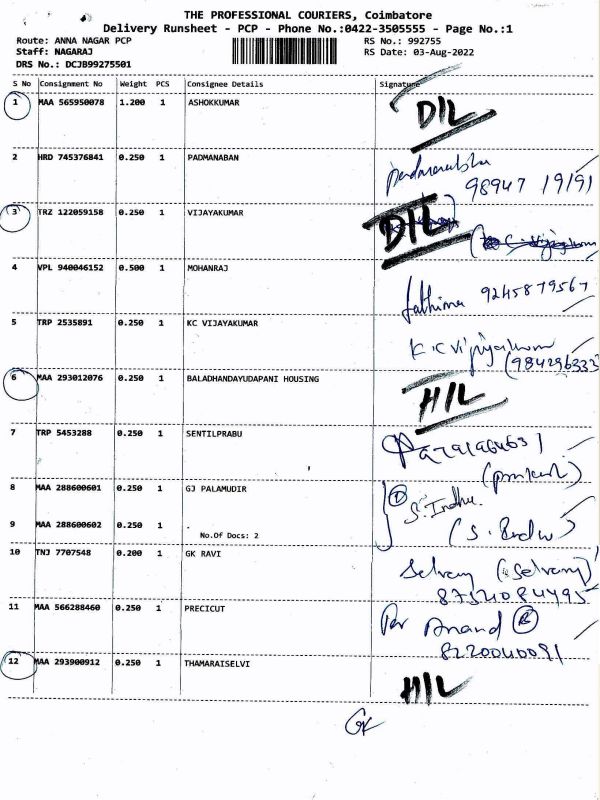 THE PROFESSIONAL COURIERS, Coimbatore
Delivery Runsheet - PCP - Phone No.:0422-3505555 - Page No.:1
Route: ANNA NAGAR PCP RS No.: 992755
Staff: NAGARAJ RS Date: 03-Aug-2022
DRS No.: DCJB99275501
S No Consignment No Weight PCS Consignee Details Signature
1 MAA 565950078 1.200 1 ASHOKKUMAR D/L
2 HRD 745376841 0.250 1 PADMANABAN
98947 19191
3 TRZ 122059158 0.250 1 VIJAYAKUMAR D/L
4 VPL 940046152 0.500 1 MOHANRAJ
fathima 9245879567
5 TRP 2535891 0.250 1 KC VIJAYAKUMAR
(984296333
6 MAA 293012076 0.250 1 BALADHANDAYUDAPANI HOUSING H/L
7 TRP 5453288 0.250 1 SENTILPRABU
8 MAA 288600601 0.250 1 GJ PALAMUDIR
S. Indhu
9 MAA 288600602 0.250 1
No.Of Docs: 2
10 TNJ 7707548 0.200 1 GK RAVI
8754084495
11 MAA 566288460 0.250 1 PRECICUT
Anand
8220040091
12 MAA 293900912 0.250 1 THAMARAISELVI H/L
GK